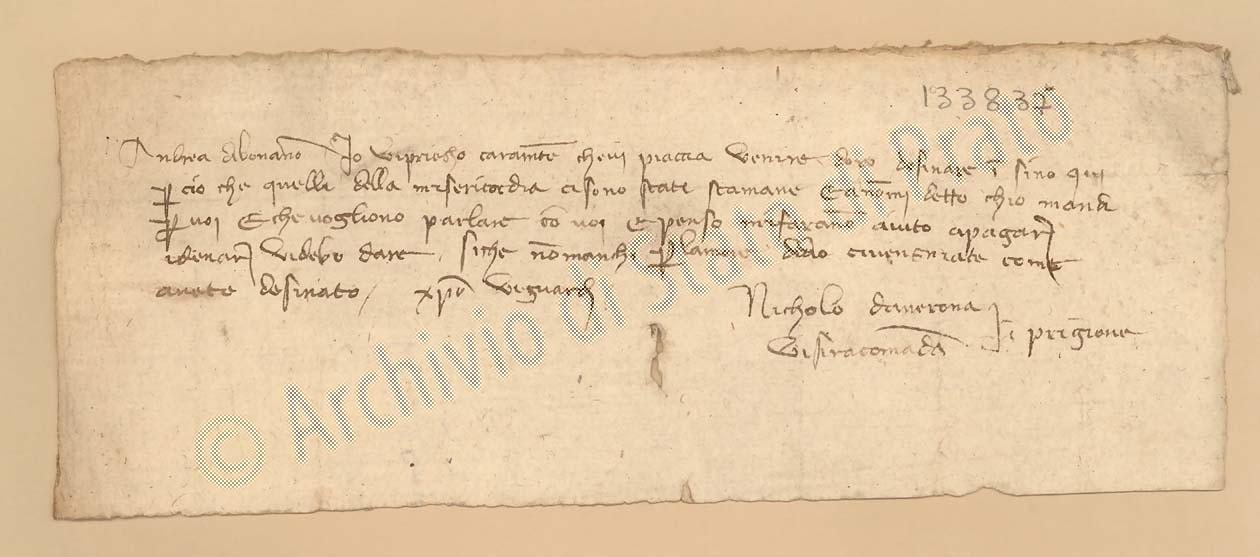 133837
Andrea dibonano Io vipriegho caramte chevi piaccia venire dopo desinare i sino qui
p cio che quelli della misericordia cisono stati stamane Eanomi detto chio mandi
p voi Eche vogliono parlare co voi E penso mifarano aiuto apagar
idenar videbo dare, siche nomanchi p lamore didio eiventurate come
avete desinato, xpo viguardi
Nicholo daverona
visiracomada
i prigione
© Archivio di Stato di Prato